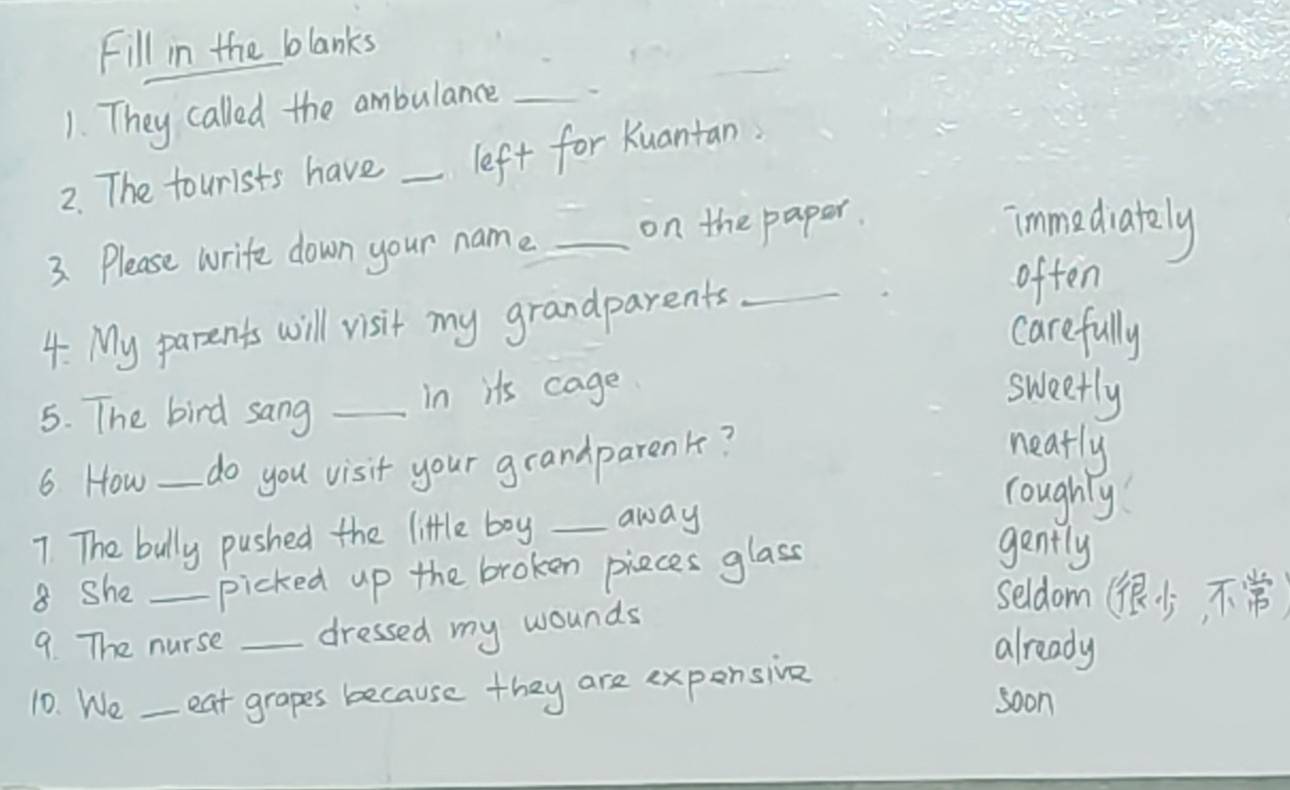 Fill in the blanks
1. They called the ambulance ___.
2. The tourists have __ left for Kuantan.
3. Please write down your name ___ on the paper.
4. My parents will visit my grandparents ___.
5. The bird sang ___ in its cage.
6 How __ do you visit your grandparents?
7 The bully pushed the little boy ___ away
8 She ___ picked up the broken pieces glass
9. The nurse ___ dressed my wounds
10. We __ eat grapes because they are expensive
immediately
often
carefully
sweetly
neatly
roughly
gently
seldom (很少, 不常)
already
soon